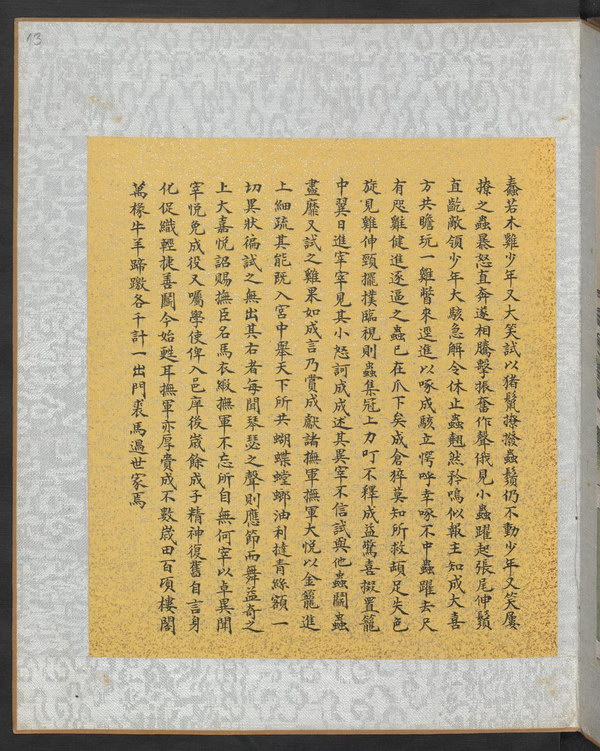 13
蠢若木雞少年又大笑試以猪鬣撩撥蟲鬚仍不動少年又笑屢
撩之蟲暴怒直奔遂相騰擊振奮作聲俄見小蟲躍起張尾伸鬚
直齕敵領少年大駭急解令休止蟲翹然矜鳴似報主知成大喜
方共瞻玩一雞瞥來逕進以啄成駭立愕呼幸啄不中蟲躍去尺
有咫雞健進逐逼之蟲已在爪下矣成倉猝莫知所救頓足失色
旋見雞伸頸擺撲臨視則蟲集冠上力叮不釋成益驚喜掇置籠
中翼日進宰宰見其小怒訶成成述其異宰不信試與他蟲鬬蟲
盡靡又試之雞果如成言乃賞成獻諸撫軍撫軍大悅以金籠進
上細疏其能既入宮中舉天下所共蝴蝶螳螂油利撻青絲額一
切異狀徧試之無出其右者每聞琴瑟之聲則應節而舞益奇之
上大嘉悅詔賜撫臣名馬衣緞撫軍不忘所自無何宰以卓異聞
宰悅免成役又囑學使俾入邑庠後歲餘成子精神復舊自言身
化促織輕捷善鬬今始甦耳撫軍亦厚賚成不數歲田百頃樓閣
萬椽牛羊蹄躈各千計一出門裘馬過世家焉